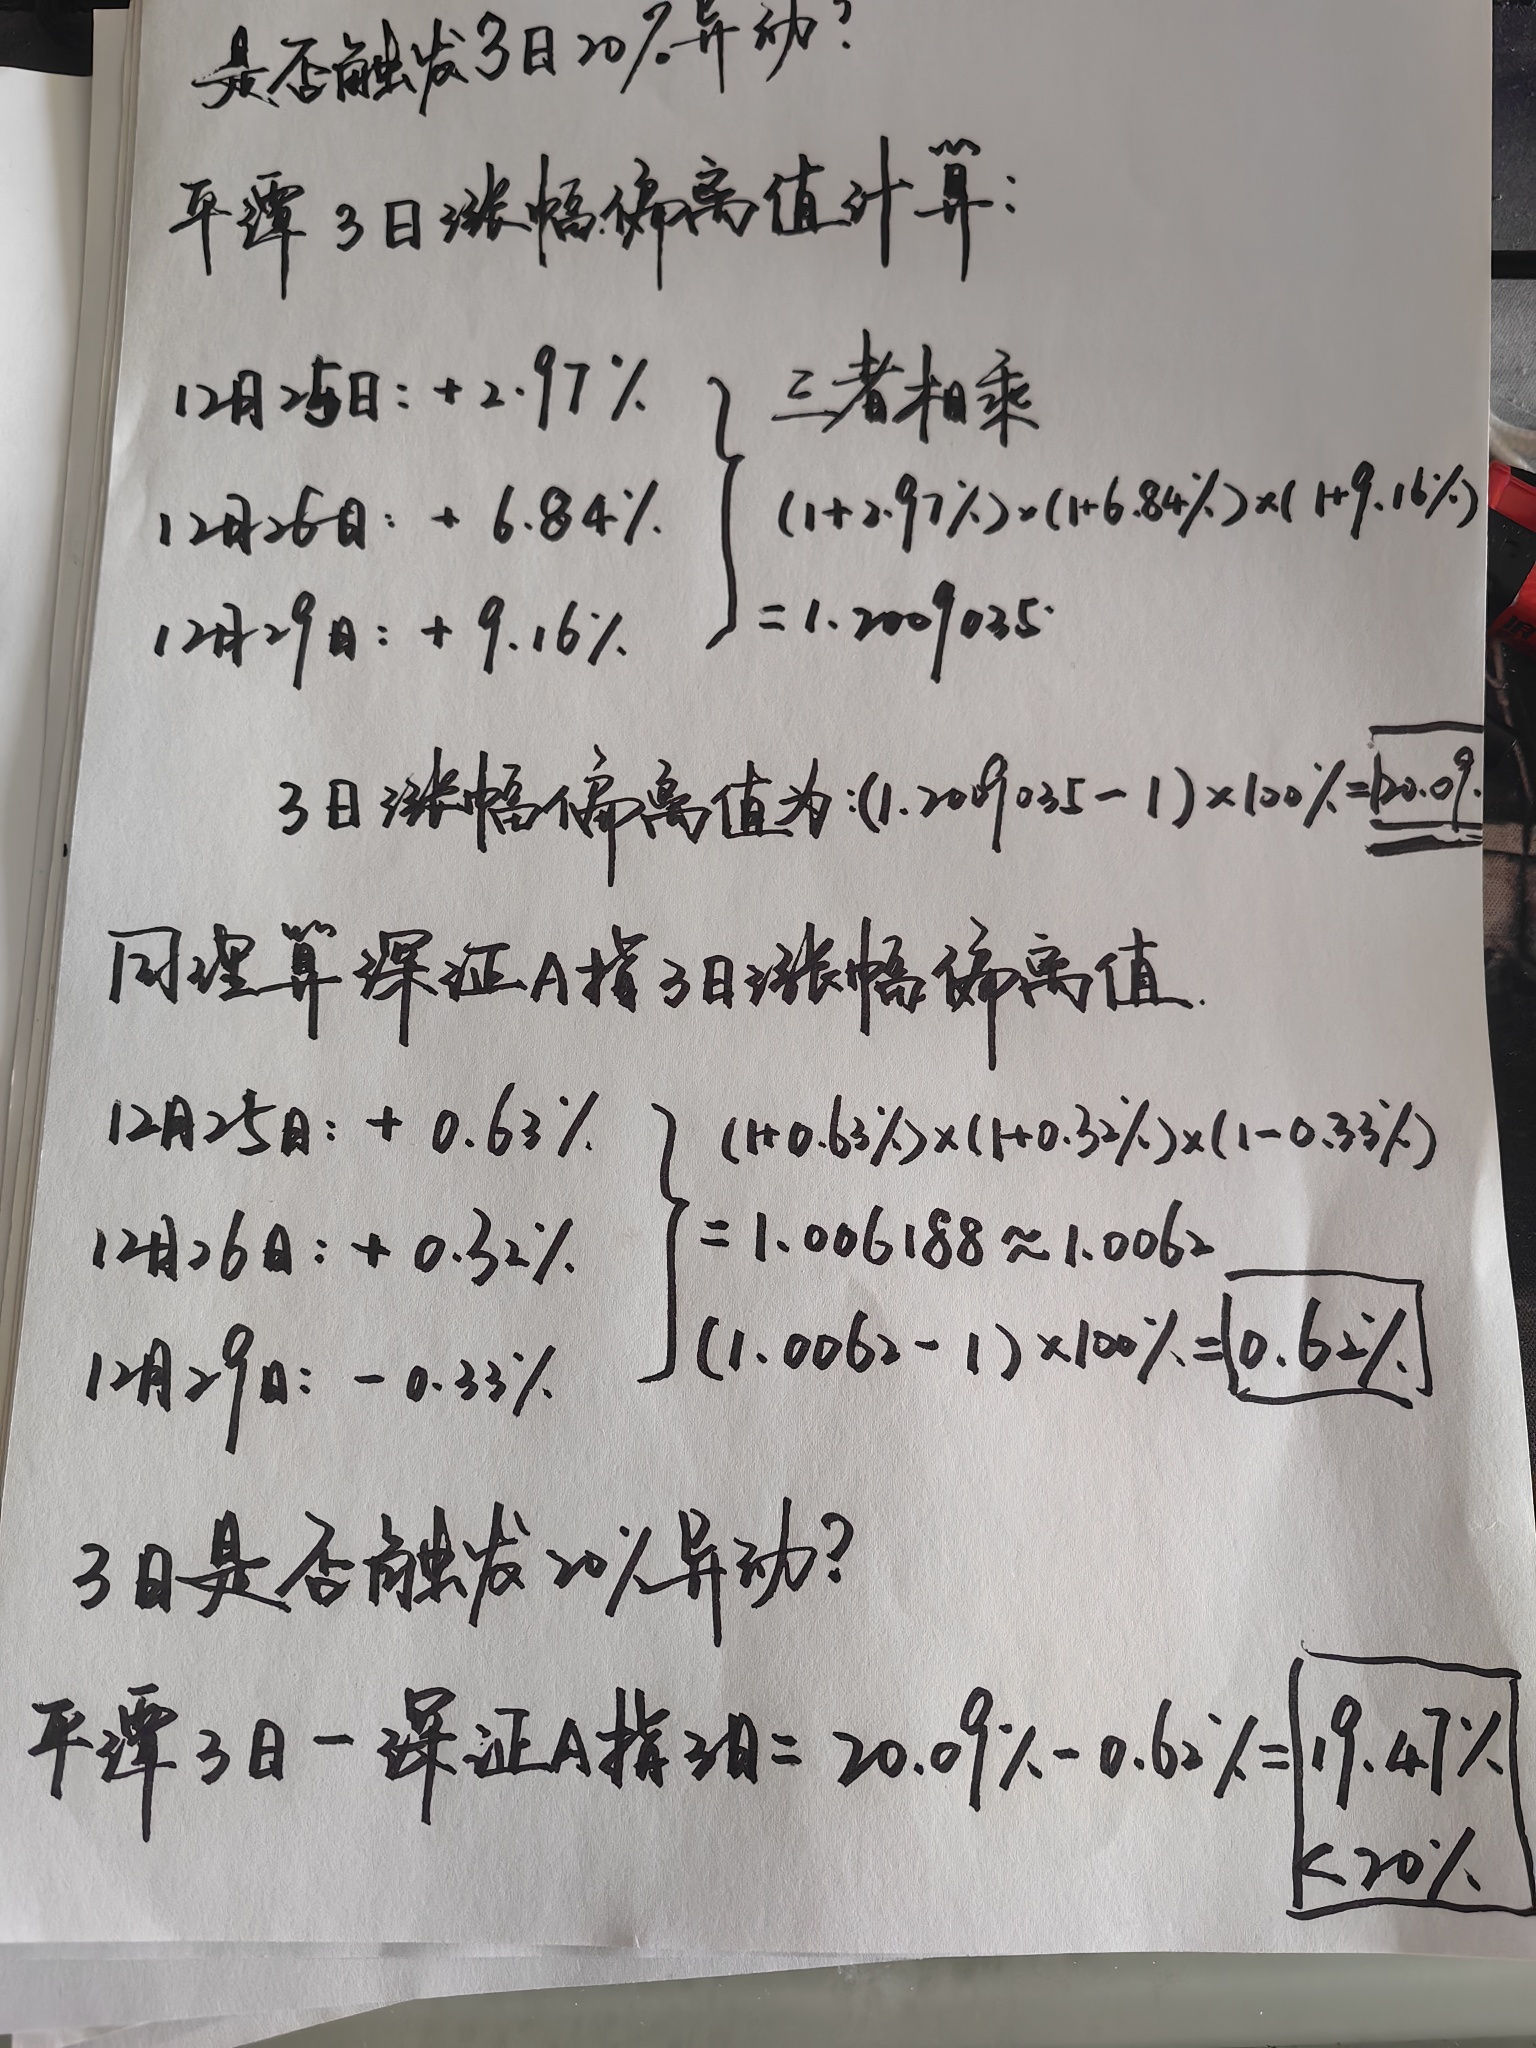 是否触发3日20%异动?
平潭3日涨幅偏离值计算:
12月25日: +2.97%
12月26日: + 6.84%
12月29日: + 9.16%
三者相乘
(1+2.97%)×(1+6.84%)×(1+9.16%)
=1.2009035
3日涨幅偏离值为:(1.2009035-1)×100%=20.09
同理算深证A指3日涨幅偏离值.
12月25日: + 0.63%
12月26日: + 0.32%
12月29日: - 0.33%
(1+0.63%)×(1+0.32%)×(1-0.33%)
=1.006188≈1.0062
(1.0062-1)×100%=0.62%
3日是否触发20%异动?
平潭3日-深证A指3日=20.09%-0.62%=19.47%
<20%